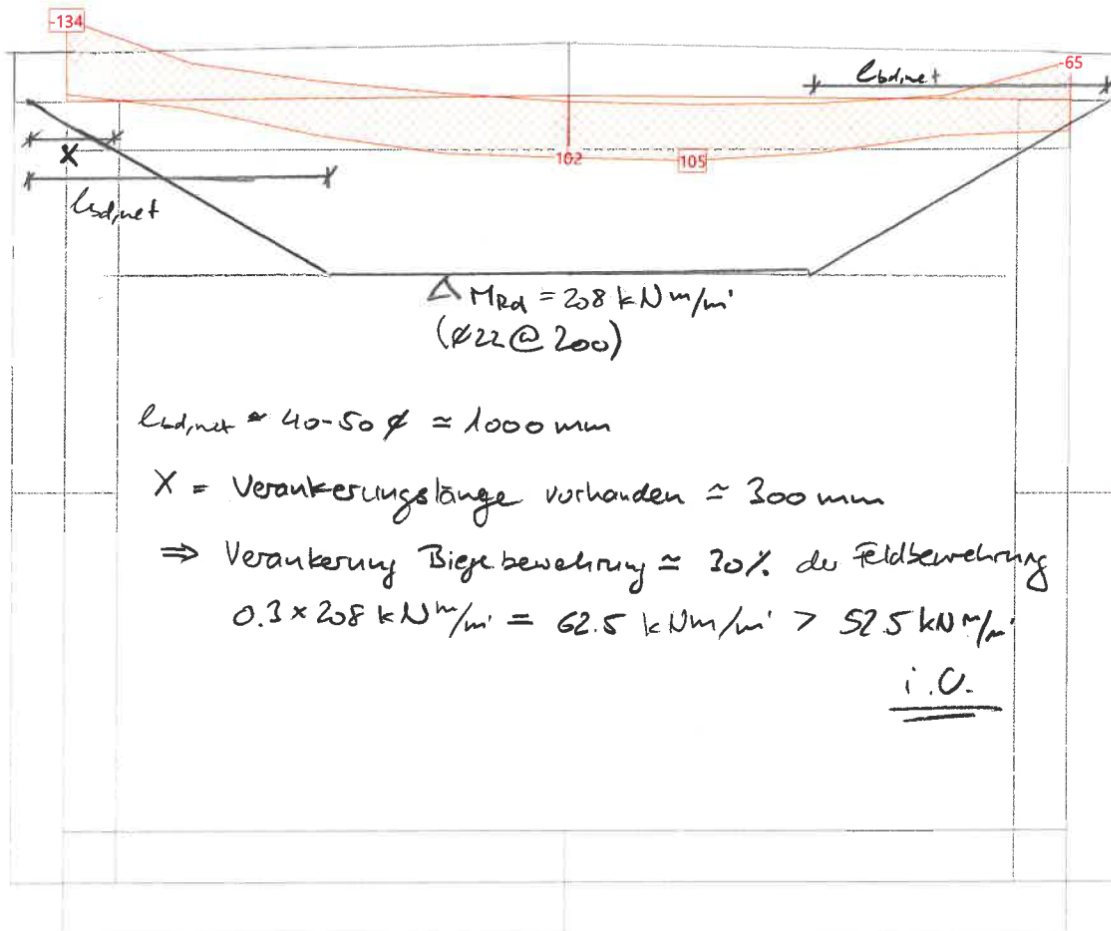 -134
-65
lbd,net
x
lbd,net
102
105
MRd = 208 kNm/m'
(ø22 @ 200)
lbd,net ≃ 40-50 ø ≃ 1000 mm
X = Verankerungslänge vorhanden ≃ 300 mm
⇒ Verankerung Biegebewehrung ≃ 30% der Feldbewehrung
0.3 × 208 kNm/m' = 62.5 kNm/m' > 52.5 kNm/m'
i.O.